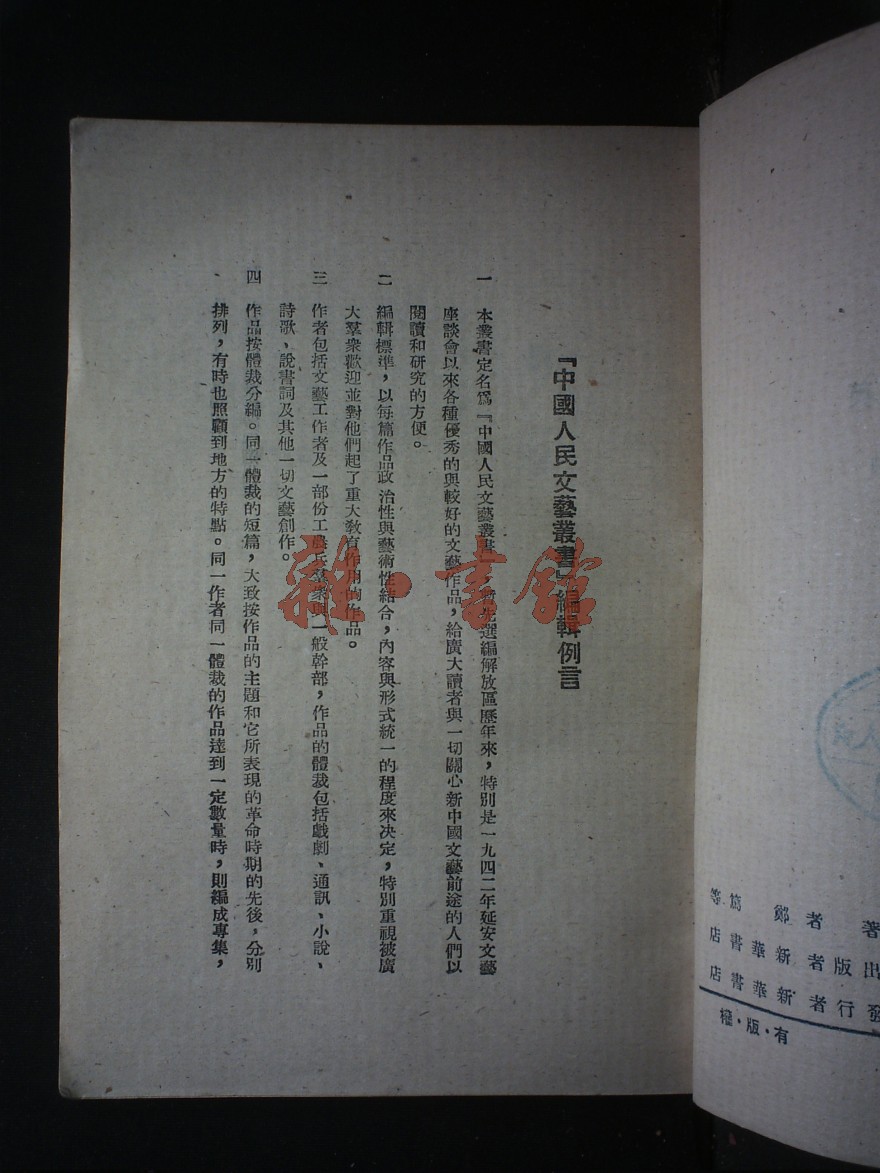 『中國人民文藝叢書』編輯例言
一　本叢書定名爲『中國人民文藝叢書』，先選編解放區歷年來，特別是一九四二年延安文藝
座談會以來各種優秀的與較好的文藝作品，給廣大讀者與一切關心新中國文藝前途的人們以
閱讀和研究的方便。
二　編輯標準，以每篇作品政治性與藝術性結合，內容與形式統一的程度來決定，特別重視被廣
大羣衆歡迎並對他們起了重大敎育作用的作品。
三　作者包括文藝工作者及一部份工農兵羣衆與一般幹部，作品的體裁包括戲劇、通訊、小說、
詩歌、說書詞及其他一切文藝創作。
四　作品按體裁分編。同一體裁的短篇，大致按作品的主題和它所表現的革命時期的先後，分別
排列，有時也照顧到地方的特點。同一作者同一體裁的作品達到一定數量時，則編成專集，
雜·書館
等篤鄭者著
店書華新者版出
店書華新者行發
權·版·有